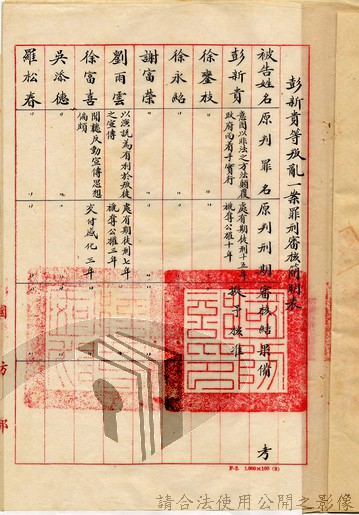 彭新貴等叛亂一案罪刑審核簡明表
被告姓名 原判罪名 原判刑期 審核結果 備考
彭新貴 意圖以非法之方法顛覆政府而著手實行 處有期徒刑十五年褫奪公權十年 擬予核准
徐鏊枝 〃 〃 〃
徐永昭 〃 〃 〃
謝富榮 〃 〃 〃
劉雨雲 以演說為有利於叛徒之宣傳 處有期徒刑七年褫奪公權三年 〃
徐富喜 聞聽反動宣傳思想偏頗 交付感化三年 〃
吳添德 〃 〃 〃
羅松春 〃 〃 〃
國防部
請合法使用公開之影像